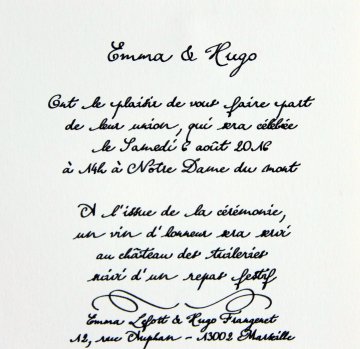 Emma & Hugo
Ont le plaisir de vous faire part
de leur union, qui sera célébrée
le Samedi 6 août 2016
à 14h à Notre Dame du mont
A l'issue de la cérémonie,
un vin d'honneur sera servi
au château des tuileries
suivi d'un repas festif
Emma Lefott & Hugo Frangeret
12, rue Auphan - 13002 Marseille